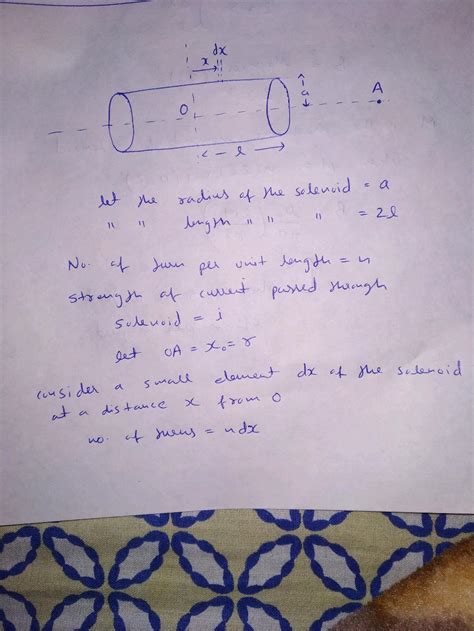 dx
x
O
a
A
l
let the radius of the solenoid = a
" " length " " " = 2l
No. of turn per unit length = n
strength of current passed through
solenoid = i
let OA = x₀ = r
consider a small element dx of the solenoid
at a distance x from O
no. of turns = ndx